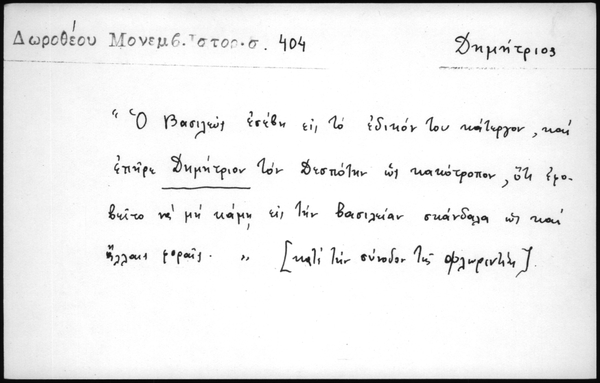 Δωροθέου Μονεμβ. Ἱστορ. σ. 404
Δημήτριος
"Ὁ Βασιλεὺς ἐσέβη εἰς τὸ ἐδικόν του κάτεργον, καὶ
ἐπῆρε Δημήτριον τὸν Δεσπότην ὡς κακότροπον, ὅτι ἐφο-
βεῖτο νὰ μὴ κάμῃ εἰς τὴν βασιλείαν σκάνδαλα ὡς καὶ
ἄλλαις φοραῖς. " [κατὰ τὴν σύνοδον τῆς Φλωρεντίας].